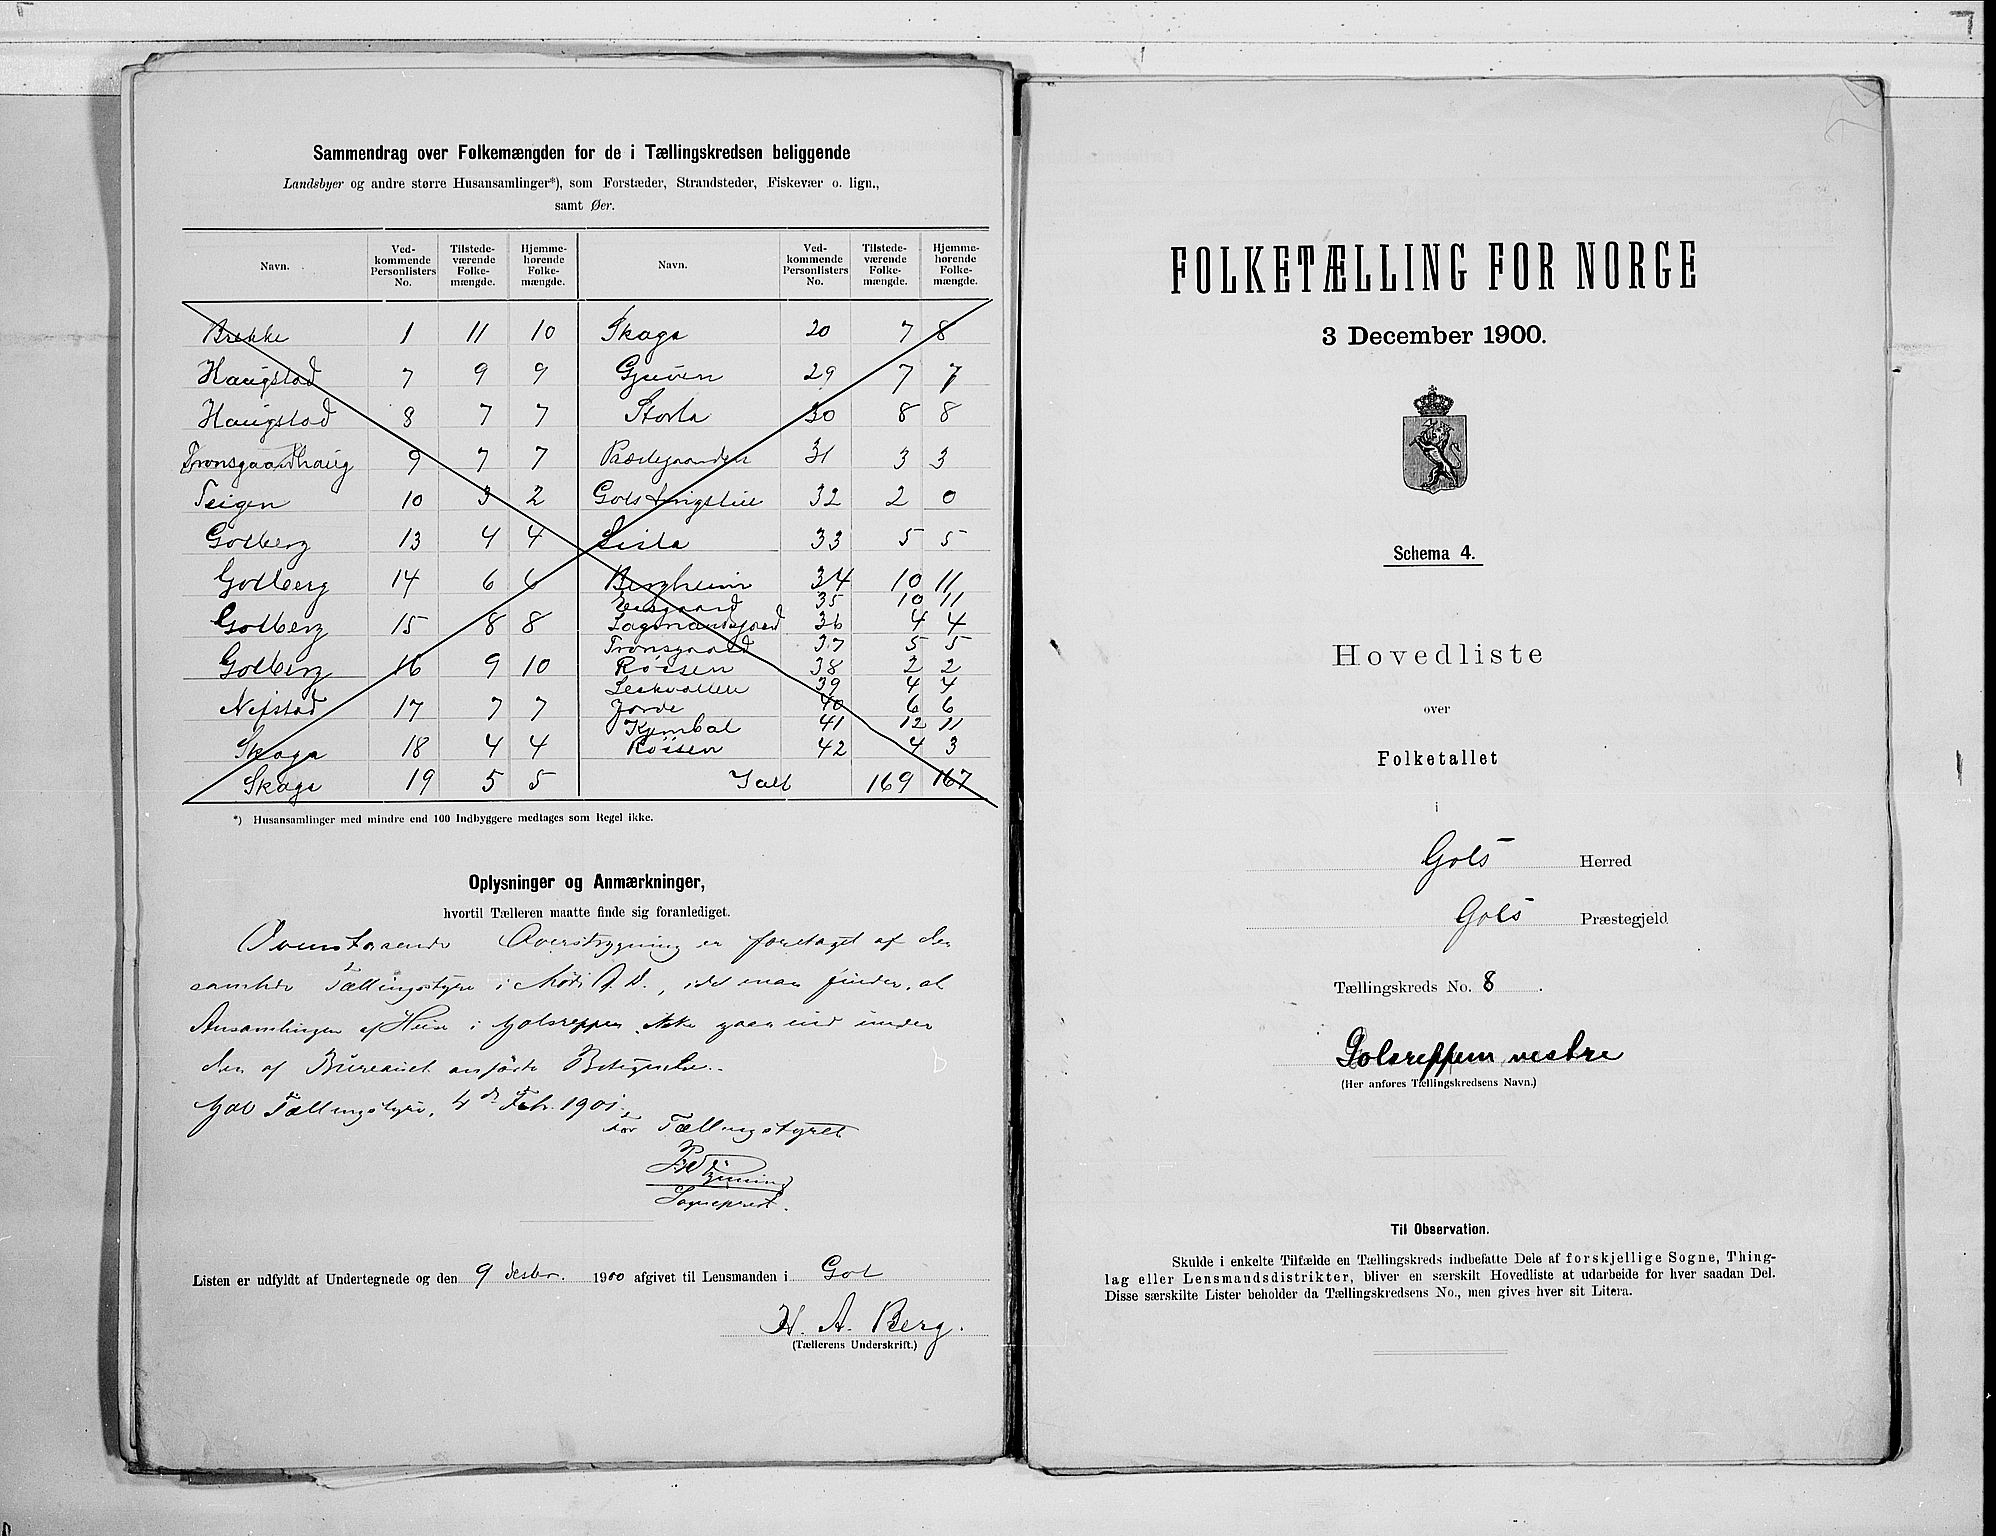 Sammendrag over Folkemængden for de i Tællingskredsen beliggende
Landsbyer og andre større Husansamlinger*), som Forstæder, Strandsteder, Fiskevær o. lign.,
samt Øer.
Navn. Ved-kommende Personlisters No. Tilstede-værende Folke-mængde. Hjemme-hørende Folke-mængde. Navn. Ved-kommende Personlisters No. Tilstede-værende Folke-mængde. Hjemme-hørende Folke-mængde.
Brekke 1 11 10 Skaga 20 7 8
Haugstad 7 9 9 Gjuven 29 7 7
Haugstad 8 7 7 Storla 30 8 8
Tronsgaardhaug 9 7 7 Prestegaarden 31 3 3
Teigen 10 3 2 Gols tingstue 32 2 0
Golberg 13 4 4 33 5 5
Golberg 14 6 6 Bergheim 34 10 11
35 10 11
Golberg 15 8 8 Lagmandsgaard 36 4 4
Tronsgaard 37 5 5
Golberg 16 9 10 Røisen 38 2 2
39 4 4
Nefstad 17 7 7 Jorde 40 6 6
41 12 11
Skaga 18 4 4 Røisen 42 4 3
Skaga 19 5 5 Ialt 169 167
*) Husansamlinger med mindre end 100 Indbyggere medtages som Regel ikke.
Oplysninger og Anmærkninger,
hvortil Tælleren maatte finde sig foranlediget.
Ovenstaaende Overstrygning er foretaget af den
samlede Tællingsstyre i Møde D. D., idet man finder, at
Ansamlingen af Huse i Golsreppen ikke gaar ind under
den af Bureauet anførte Betegnelse.
Gol Tællingsstyre, 4de Febr. 1901.
For Tællingsstyret
Sogneprest.
Listen er udfyldt af Undertegnede og den 9 desbr. 1900 afgivet til Lensmanden i Gol
H. A. Berg.
(Tællerens Underskrift.)
FOLKETÆLLING FOR NORGE
3 December 1900.
Schema 4.
Hovedliste
over
Folketallet
i
Gols Herred
Gols Præstegjeld
Tællingskreds No. 8.
Golsreppen vestre
(Her anføres Tællingskredsens Navn.)
Til Observation.
Skulde i enkelte Tilfælde en Tællingskreds indbefatte Dele af forskjellige Sogne, Thing-
lag eller Lensmandsdistrikter, bliver en særskilt Hovedliste at udarbeide for hver saadan Del.
Disse særskilte Lister beholder da Tællingskredsens No., men gives hver sit Litera.